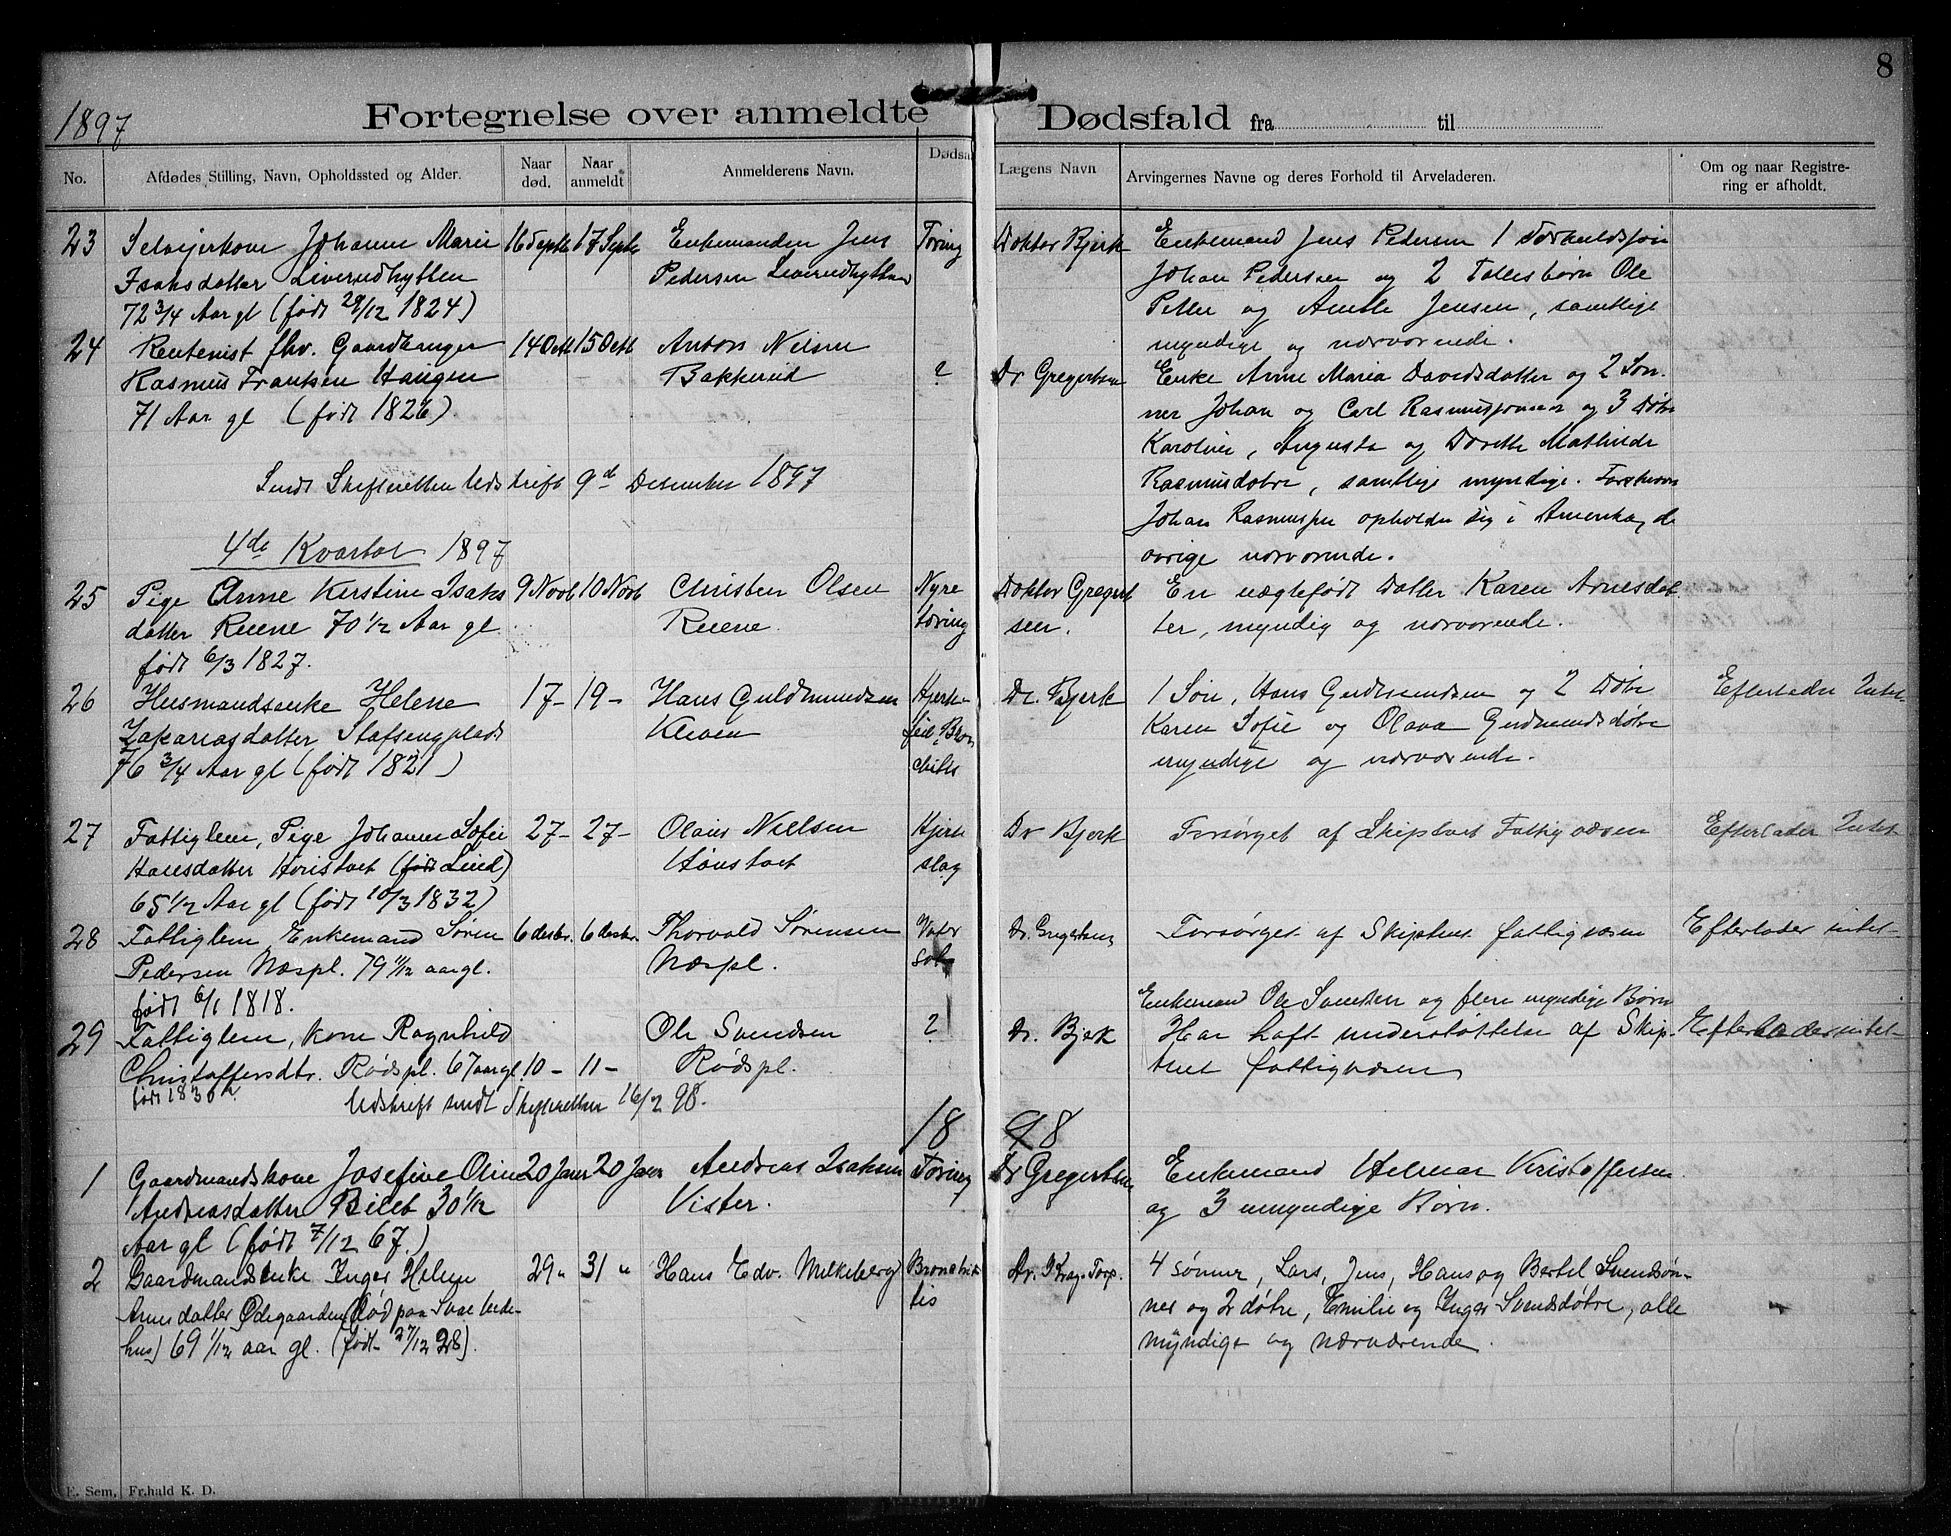 8
1897
Fortegnelse over anmeldte Dødsfald fra til
No.
Afdødes Stilling, Navn, Opholdssted og Alder.
Naar død.
Naar anmeldt
Anmelderens Navn.
Dødsa
Lægens Navn
Arvingernes Navne og deres Forhold til Arveladeren.
Om og naar Registre-
ring er afholdt.
23 Selveierkone Johanne Marie 16 Septb 17 Septb Enkemanden Jens Tæring Doktor Bjerk Enkemand Jens Pedersen 1
Isaksdatter Liverudhytten Pedersen Liverudhytten Johan Pedersen og 2 Fællesbørn Ole
72 3/4 Aar gl (født 29/12 1824) Petter og Amalie Jensen, samtlige
myndige og nærværende.
24 Rentenist fhv. Gaardbruger 14 Octb 15 Octb Anton Nilsen
Rasmus Frantsen Haugen Bakkerud ? Dr Gregertsen Enke Anne Maria Davidsdatter og 2 Søn-
71 Aar gl (født 1826). ner Johan og Carl Rasmussønner og 3 Døtre
Karoline, Augusta og Dorette Mathilde
Sendt Skifteretten Udskrift 9d Desember 1897 Rasmusdøtre, samtlige myndige.
Johan Rasmussen opholder sig i Amerika, de
4de Kvartal 1897 øvrige nærværende.
25 Pige Anne Kirstine Isaks 9 Novb 10 Novb Christen Olsen Nyre Doktor Gregert En uægtefødt Datter Karen Arnesdat
datter Ruene 70 1/2 Aar gl Ruene. tæring sen. ter, myndig og nærværende.
født 6/3 1827.
26 Husmandsenke Helene 17- 19- Hans Guldmundsen Hjerte- Dr. Bjerk 1 Søn, Hans Gudmundsen og 2 Døtre Efterlader Intet
Zakariasdatter Stafsengplads Kleven feil, Bron Karen Sofie og Olava Gudmundsdøtre
76 3/4 Aar gl (født 1821) chitis myndige og nærværende.
27 Fattiglem, Pige Johanne Sofie 27- 27- Olaus Nielsen Hjerte Dr Bjerk Forsørget af Skiptvet Fattigvæsen Efterlader Intet
Hansdatter (født Lund) slag
65 1/2 Aar gl (født 10/3 1832)
28 Fattiglem, Enkemand Søren 6 desbr. 6 desbr. Thorvald Sørensen Vater Dr. Gregertsen Forsørget af Skiptvet fattigvæsen Efterlader intet
Pedersen Næspl. 79 11/12 aar gl. Næspl. sot
født 6/1 1818. Enkemand Ole Svendsen og flere myndige Børn
29 Fattiglem, kone Ragnhild Ole Svendsen ? Dr. Bjerk Har haft understøttelse af Skip- Efterlader intet
Christoffersdtr. Rødspl. 67 aar gl. 10- 11- Rødspl. tvet fattigvæsen
født 1830
Udskrift sendt Skifteretten 16/2 98.
18 98
1 Gaardmandskone Josefine Oline 20 Janr 20 Janr Andreas Isaksen Tæring Dr Gregertsen Enkemand Helmar Kristoffersen
Andreasdatter Bilet 30 1/12 Vister. og 3 umyndige Børn.
Aar gl (født 7/12 67.)
2 Gaardmandsenke Inger Helene 29 " 31 " Hans Edv. Melkeberg Dr. Krag-Torp. 4 sønner, Lars, Jens, Hans og Bertel Svendsøn-
Arnesdatter Ødegaarden (død paa ner og 2 døtre, Emilie og Inger Svendsdøtre, alle
hus) 69 1/12 aar gl. (født 27/12 28). myndige og nærværende.
E. Sem, Fr.hald K. D.